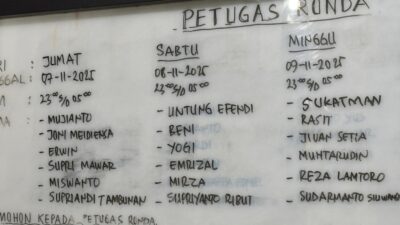 PETUGAS RONDA
JUMAT SABTU MINGGU
07-11-2025 08-11-2025 09-11-2025
23⁰⁰ S/D 05⁰⁰ 23⁰⁰ S/D 05⁰⁰ 23⁰⁰ S/D 05⁰⁰
- MUJIANTO - UNTUNG EFENDI - SUKATMAN
- JONI MEIDIENSA - BENI - RASIT
- ERWIN - YOGI - JIUAN SETIA
- SUPRI MAWAR - EMRIZAL - MUHTARUDIN
- MISWANTO - MIRZA - REZA LAMTORO
- SUPRIANDI TAMBUNAN - SUPRIYANTO RIBUT - SUDARMANTO SIUWANDI
MOHON KEPADA PETUGAS RONDA